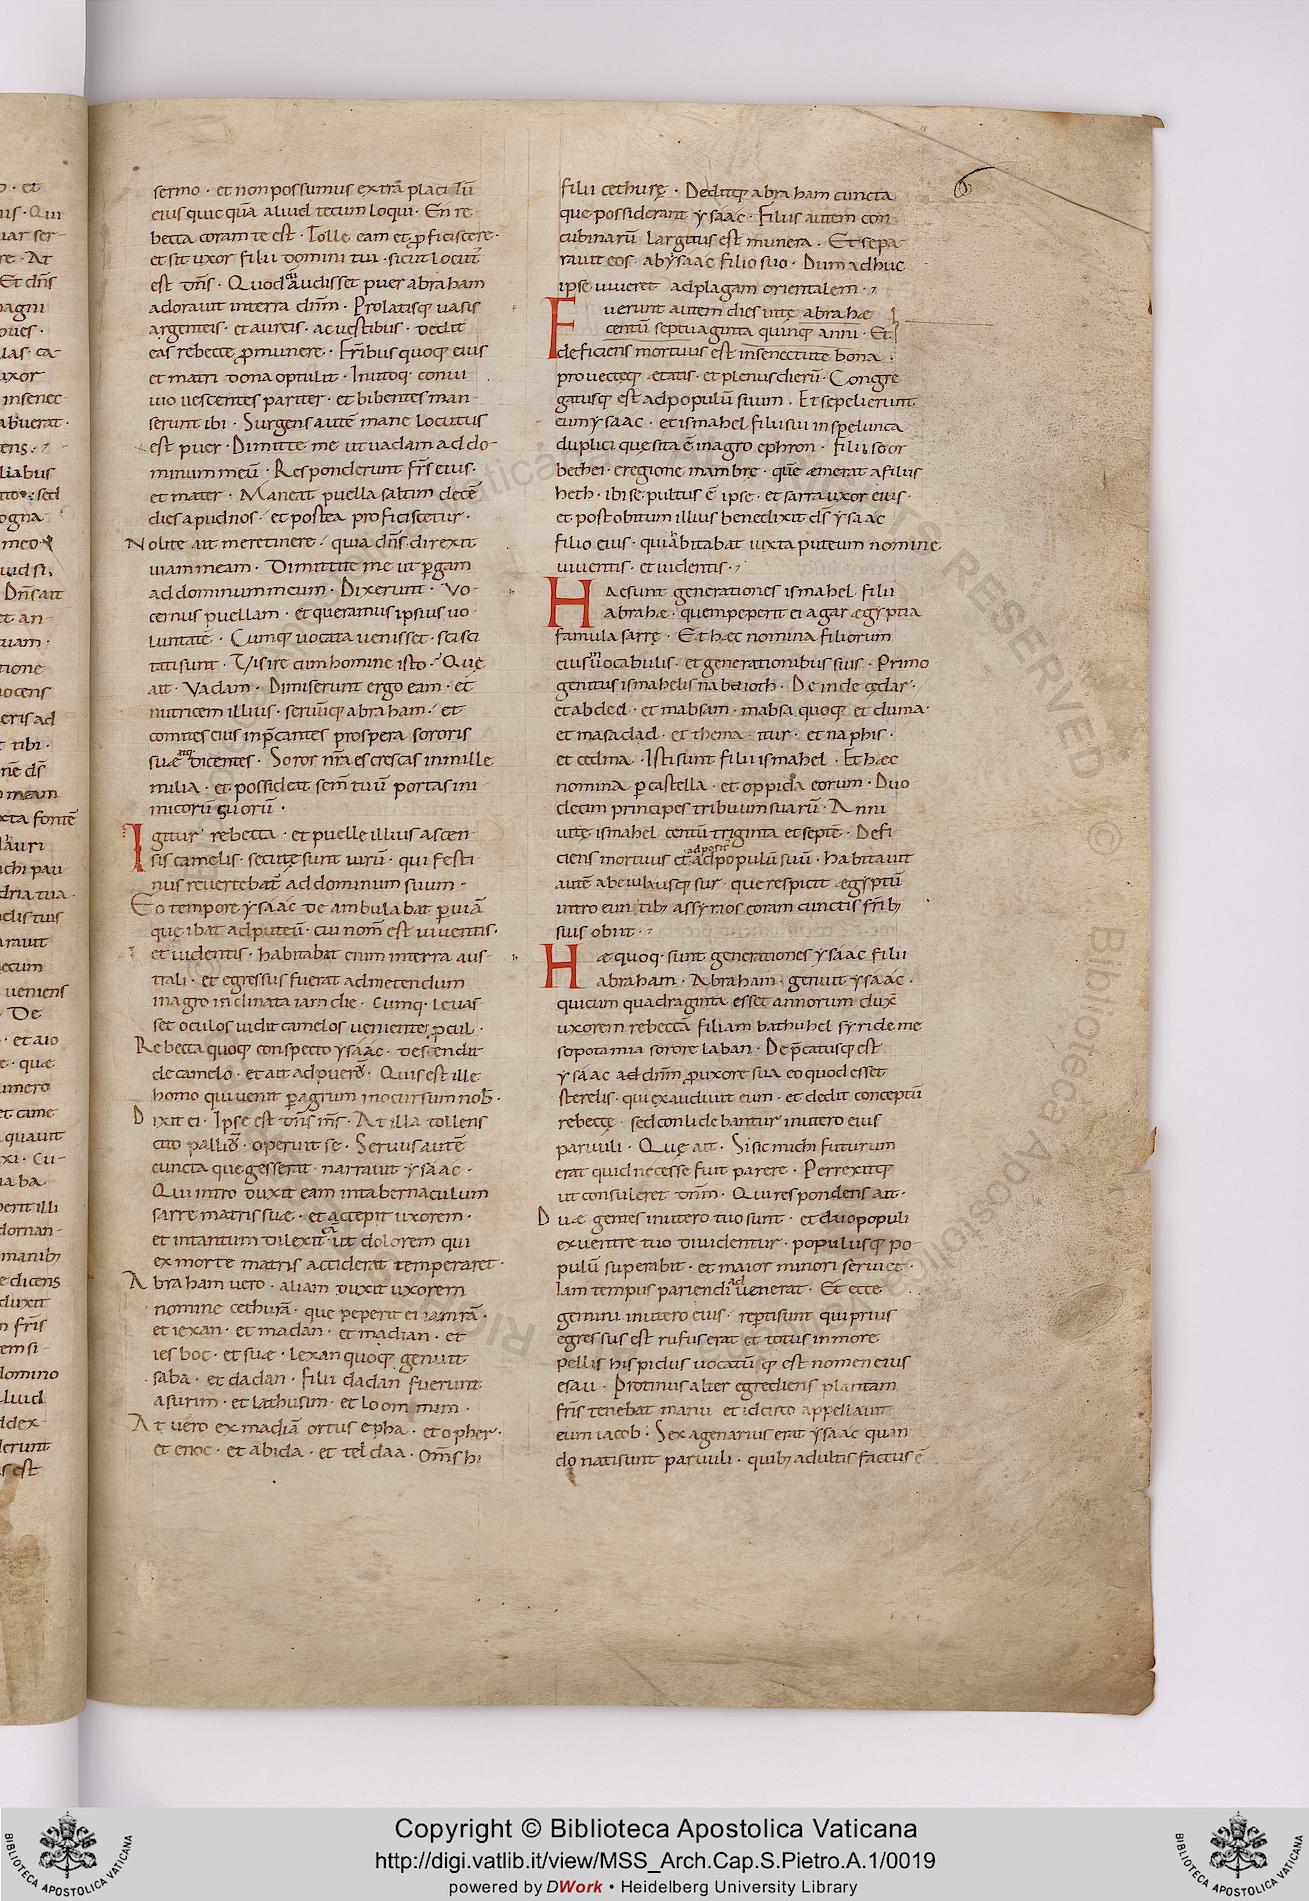 sermo · et non possumus extra placitū
eius quicquā aliud tecum loqui · En re
becca coram te est · Tolle eam et ꝓficiscere ·
et sit uxor filii domini tui · sicut locut᷒
est dn̄s · Quod cū audisset puer abraham
adorauit in terra dn̄m · Prolatisq; uasis
argenteis · et aureis · ac uestibus · dedit
eas rebecce ꝓ munere · Fr̄ibus quoq; eius
et matri dona optulit · Inito q· conui
uio uescentes pariter · et bibentes man-
serunt ibi · Surgens autē mane locutus
est puer · Dimitte me ut uadam ad do-
minum meū · Responderunt fr̄s eius ·
et mater · Maneat puella saltim decē
dies apud nos · et postea proficiscetur ·
Nolite ait me retinere · quia dn̄s direxit
uiam meam · Dimittite me ut ꝑgam
ad dominum meum · Dixerunt · Vo-
cemus puellam · et queramus ipsius uo
luntatē · Cumq; uocata uenisset · scisci
tati sunt · Vis ire cum homine isto · Quę
ait · Vadam · Dimiserunt ergo eam · et
nutricem illius · seruūq; abraham · et
comites eius inp̄cantes prospera sorori
suæ atq; dicentes · Soror nr̄a es crescas in mille
milia · et possideat sem̄ tuū portas ini
micorū suorū ·
Igitur rebecca · et puelle illius ascen
sis camelis · secutę sunt uirū · qui festi
nus reuertebat᷒ ad dominum suum ·
Eo tempore ysaac deambulabat ꝑ uiā
quę ibat ad puteū · cui nom̄ est uiuentis ·
et uidentis · habitabat enim in terra aus-
trali · et egressus fuerat ad metendum
in agro inclinata iam die · Cumq· leuas
set oculos uidit camelos uenientes ꝓcul ·
Rebecca quoq; conspecto ysaac · descendit
de camelo · et ait ad puerū · Quis est ille
homo qui uenit ꝑ agrum in occursum nob̄ ·
Dixit ei · Ipse est dn̄s m̄s · At illa tollens
cito palliū · operuit se · Seruus autē
cuncta que gesserat · narrauit ysaac ·
Qui intro duxit eam in tabernaculum
sarre matris suæ · et accepit uxorem ·
et in tantum dilexit eā ut dolorem qui
ex morte matris acciderat temperaret ·
Abraham uero · aliam duxit uxorem
nomine cethurā · que peperit ei iamrā ·
et iexan · et madan · et madian · et
iesboc · et suæ · Iexan quoq; genuit
saba · et dadan · filii dadan fuerunt
asurim · et lathusim · et loommim ·
At uero ex madiā ortus epha · et opher ·
et enoc · et abida · et teldaa · Om̄s hi
filii cethurę · Deditq; abraham cuncta
que possiderant ysaac · Filius autem con
cubinarū largitus est munera · Et sepa
rauit eos · ab ysaac filio suo · Dum adhuc
ipse uiueret ad plagam orientalem ·
Fuerunt autem dies uitę abrahæ
centū septuaginta quinq; anni · Et
deficiens mortuus est in senectute bona ·
prouecteq; ætatis · et plenus dierū · Congre
gatusq; est ad populū suum · Et sepelierunt
eum ysaac · et ismahel filii sui in spelunca
duplici que sita ē in agro ephron · filii seor
bethei · e regione mambre · quē æmerat a filiis
heth · ibi sepultus ē ipse · et sarra uxor eius ·
et post obitum illius benedixit ds̄ ysaac
filio eius · qui abitabat iuxta puteum nomine
uiuentis · et uidentis ·
Hæ sunt generationes ismahel filii
abrahæ · quem peperit ei agar ægyptia
famula sarrę · Et hæc nomina filiorum
eius in uocabulis · et generationibus suis · Primo
genitus ismahelis nabaioth · Deinde cędar ·
et abdeel · et mabsam · mabsa quoq; et duma ·
et masa dad · et thema · itur · et naphis ·
et cedma · Isti sunt filii ismahel · Et hæc
nomina ꝑ castella · et oppida eorum · Duo
decim principes tribuum suarū · Anni
uitę ismahel centū triginta et septē · Defi
ciens mortuus et adposit᷒ ad populū suū · habitauit
autē ab euila usq; sur · que respicit ægyptū
introeuntib; assyrios coram cunctis fr̄ib;
suis obiit ·
Hæ quoq· sunt generationes ysaac filii
abraham · Abraham · genuit ysaac ·
qui cum quadraginta esset annorum dux̄
uxorem rebeccā filiam bathuhel syri de me
sopotamia sorore laban · Dep̄catusq; est
ysaac ad dn̄m ꝓ uxore sua eo quod esset
sterelis · qui exaudiuit eum · et dedit conceptū
rebecce · sed conlidebantur in utero eius
paruuli · Quę ait · Si sic michi futurum
erat quid necesse fuit parere · Perrexitq;
ut consuleret dn̄m · Qui respondens ait ·
Duæ gentes in utero tuo sunt · et duo populi
ex uentre tuo diuidentur · populusq; po
pulū superabit · et maior minori seruiet ·
Iam tempus pariendi aduenerat · Et ecce
gemini in utero eius · rep̄ti sunt qui prius
egressus est rufus erat et totus in more
pellis hispidus uocatū q; est nomen eius
esau · Protinus alter egrediens plantam
fr̄is tenebat manu et idcirco appellauit
eum iacob · Sexagenarius erat ysaac quan
do nati sunt paruuli · quib; adultis factus ē
6
Copyright © Biblioteca Apostolica Vaticana
http://digi.vatlib.it/view/MSS_Arch.Cap.S.Pietro.A.1/0019
powered by DWork • Heidelberg University Library